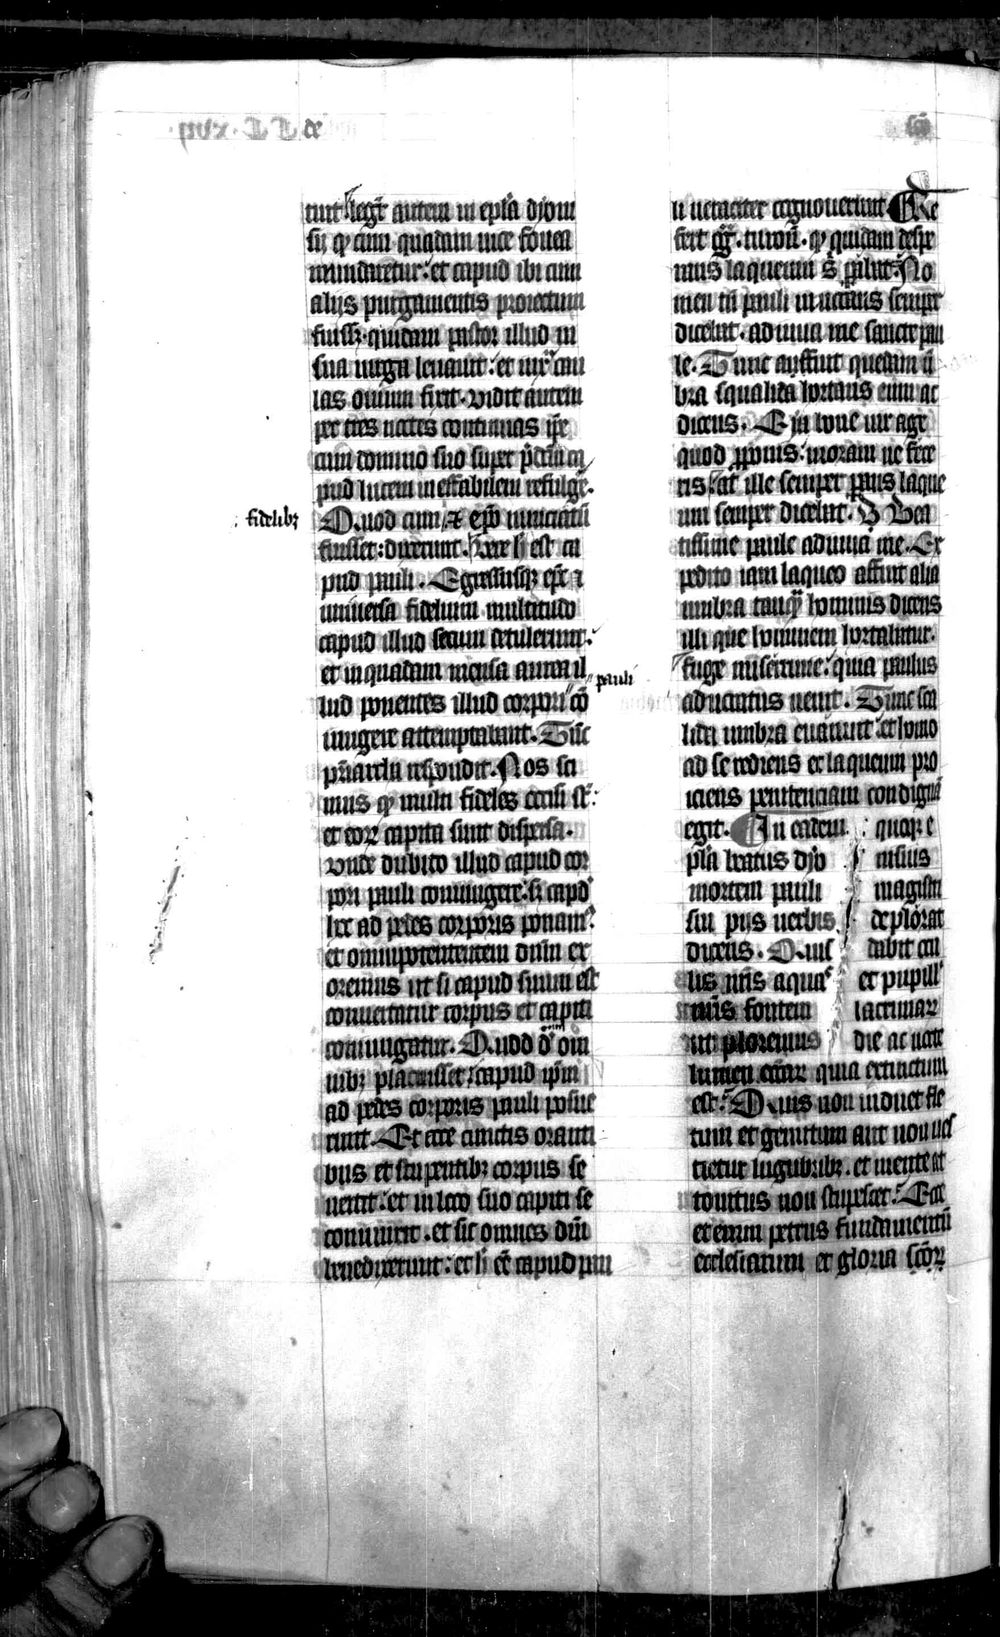 de
scō
runt legr̄ autem in epl̄a dyoni
sij qͥ cum quadam uice fouea
mundaretur. et capud ibi cum
alijs purgamentis proiectum
fuissꝫ. quidam pastor illud in
sua uirga leuauit: et iuxͣ cau
las ouium fixit. vidit autem
per tres noctes continuas ip̄e
cum domino suo super p̄dc̄m ca
pud lucem ineffabilem refulge͛.
Quod cum ⁊ ep̄o nunciatū
fidelibꝫ
fuisset: dixerunt. Vere h̄ est ca
pud pauli. Egressusqꝫ ep̄c ⁊
uniuersa fidelium multitudo
capud illud secum detulerunt.
et in quadam mensa aurea il
lud ponentes illud corpori cō
pauli
iungere attemptabant. Tūc
pr̄iarcha respondit. Nos sci
mus qͥ multi fideles occisi sͭ:
et eoꝝ capita sunt dispersa.
vnde dubito illud capud cor
pori pauli coniungere. sꝫ capd͛
hoc ad pedes corporis ponam͛.
et omnipotententem dn̄m ex
oremus ut si capud suum est
conuertatur corpus et capiti
coniungatur. Quod d͛ om
nibꝫ placuisset. capud ip̄m
ad pedes corporis pauli posue
runt. Et ecce cunctis oranti
bus et stupentibꝫ corpus se
uertit. et in loco suo capiti se
coniunxit. et sic omnes dm̄
benedixerunt: et h̄ eē capud pau
li ueraciter cognouerunt. Re
fert g͛g͛. turon̄. qͥ quidam despe
rans laqueum s͛ parabat. No
men tn̄ pauli inuocans semper
dicebat. adiuua me sancte pau
le. Tunc affuit quedam ū
bra squalida hortans eum ac
dicens. Eya bone uir age
quod ꝓponis. moram ne fece
ris. at ille semper parans laque
um semper dicebat. Bea
tissime paule adiuua me. Ex
pedito iam laqueo affuit alia
umbra tamqͣ hominis dicens
illi que hominem hortabatur.
fuge miserrime. quia paulus
aduocatus uenit. Tunc sca
lida umbra euanuit. et homo
ad se rediens et laqueum pro
iciens penitenciam condignā
egit. In eadem quoqꝫ e
pl̄a beatus dyo nisius
mortem pauli magistri
sui pijs uerbis deplorat
dicens. Quis dabit ocu
lis nr̄is aquas et pupill͛
nr̄is fontem lacrimaꝝ
ut ploremus die ac nocte
lumen ecc̄iaꝝ quia extinctum
est. Quis non induet fle
tum et gemitum aut non ues
tietur lugubribꝫ. et mente at
tonitus non stupescet. Ecce
et enim petrus fundamentū
ecclesiarum et gloria sc̄oꝝ